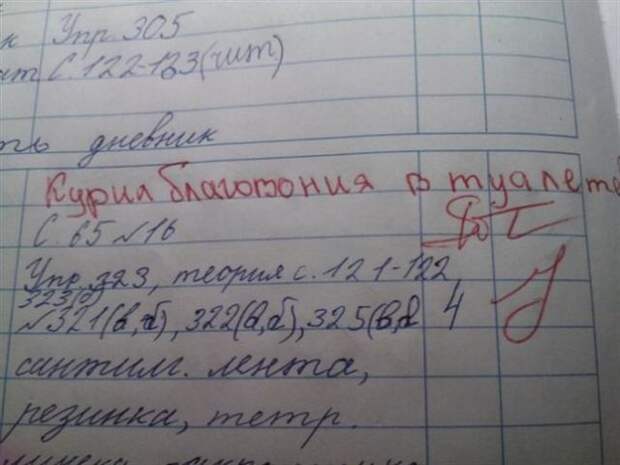 Упр. 305
С. 122-123(чит.)
дневник
Курил благовония в туалете
С. 65 №16
Упр. 323, теория с. 121-122
323(б)
№321(в,б), 322(а,б), 325(в, 4
сантим. лента,
резинка, тетр.